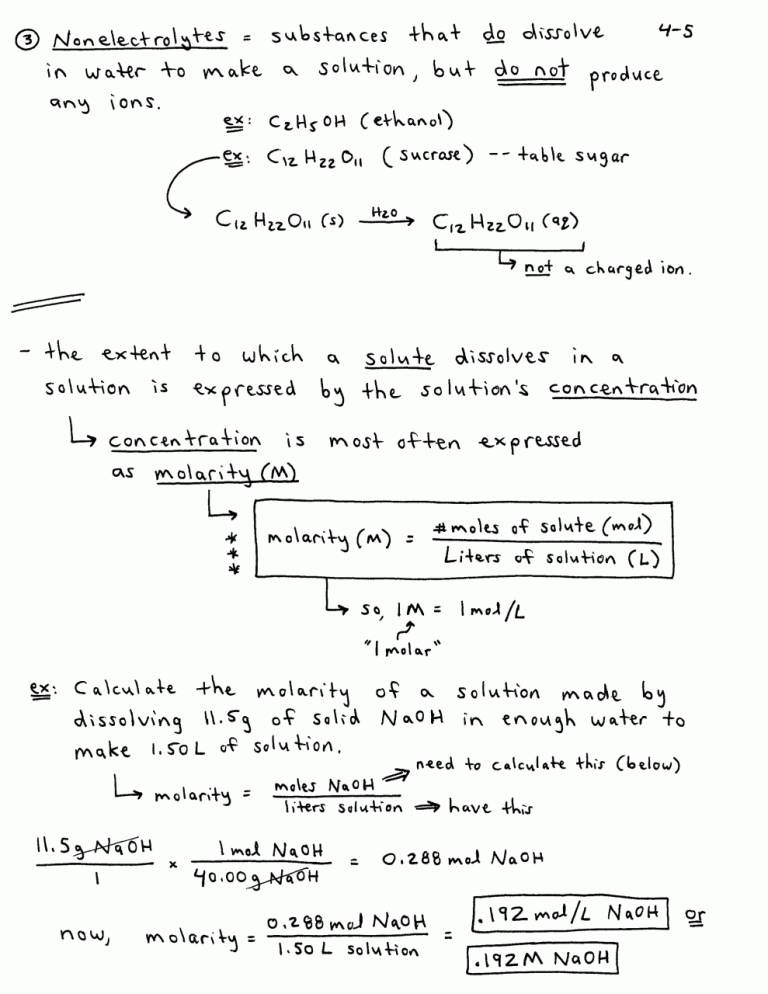 ③ Nonelectrolytes = substances that do dissolve 4-5
in water to make a solution, but do not produce
any ions.
ex: C₂H₅OH (ethanol)
ex: C₁₂H₂₂O₁₁ (sucrase) -- table sugar
C₁₂H₂₂O₁₁ (s) —H₂O→ C₁₂H₂₂O₁₁ (aq)
↳ not a charged ion.
- the extent to which a solute dissolves in a
solution is expressed by the solution's concentration
↳ concentration is most often expressed
as molarity (M)
↳ *** molarity (M) = #moles of solute (mol) / Liters of solution (L)
↳ so, 1M = 1mol/L
"1 molar"
ex: Calculate the molarity of a solution made by
dissolving 11.5g of solid NaOH in enough water to
make 1.50L of solution.
↳ molarity = moles NaOH / liters solution
⇒ need to calculate this (below)
⇒ have this
11.5g NaOH / 1 × 1mol NaOH / 40.00g NaOH = 0.288 mol NaOH
now, molarity = 0.288 mol NaOH / 1.50 L solution = .192 mol/L NaOH or
.192M NaOH